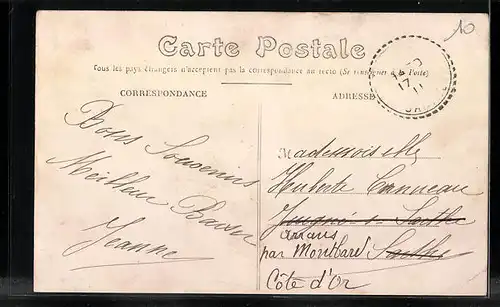 10
Carte Postale
Tous les pays étrangers n'acceptent pas la correspondance au recto (Se renseigner à la Poste)
CORRESPONDANCE
ADRESSE
Bons Souvenirs
Meilleur Baiser
Jeanne
Mademoiselle
Huberte Canneau
Juigné s. Sarthe
arrans
par Montbard Sarthe
Côte d'Or